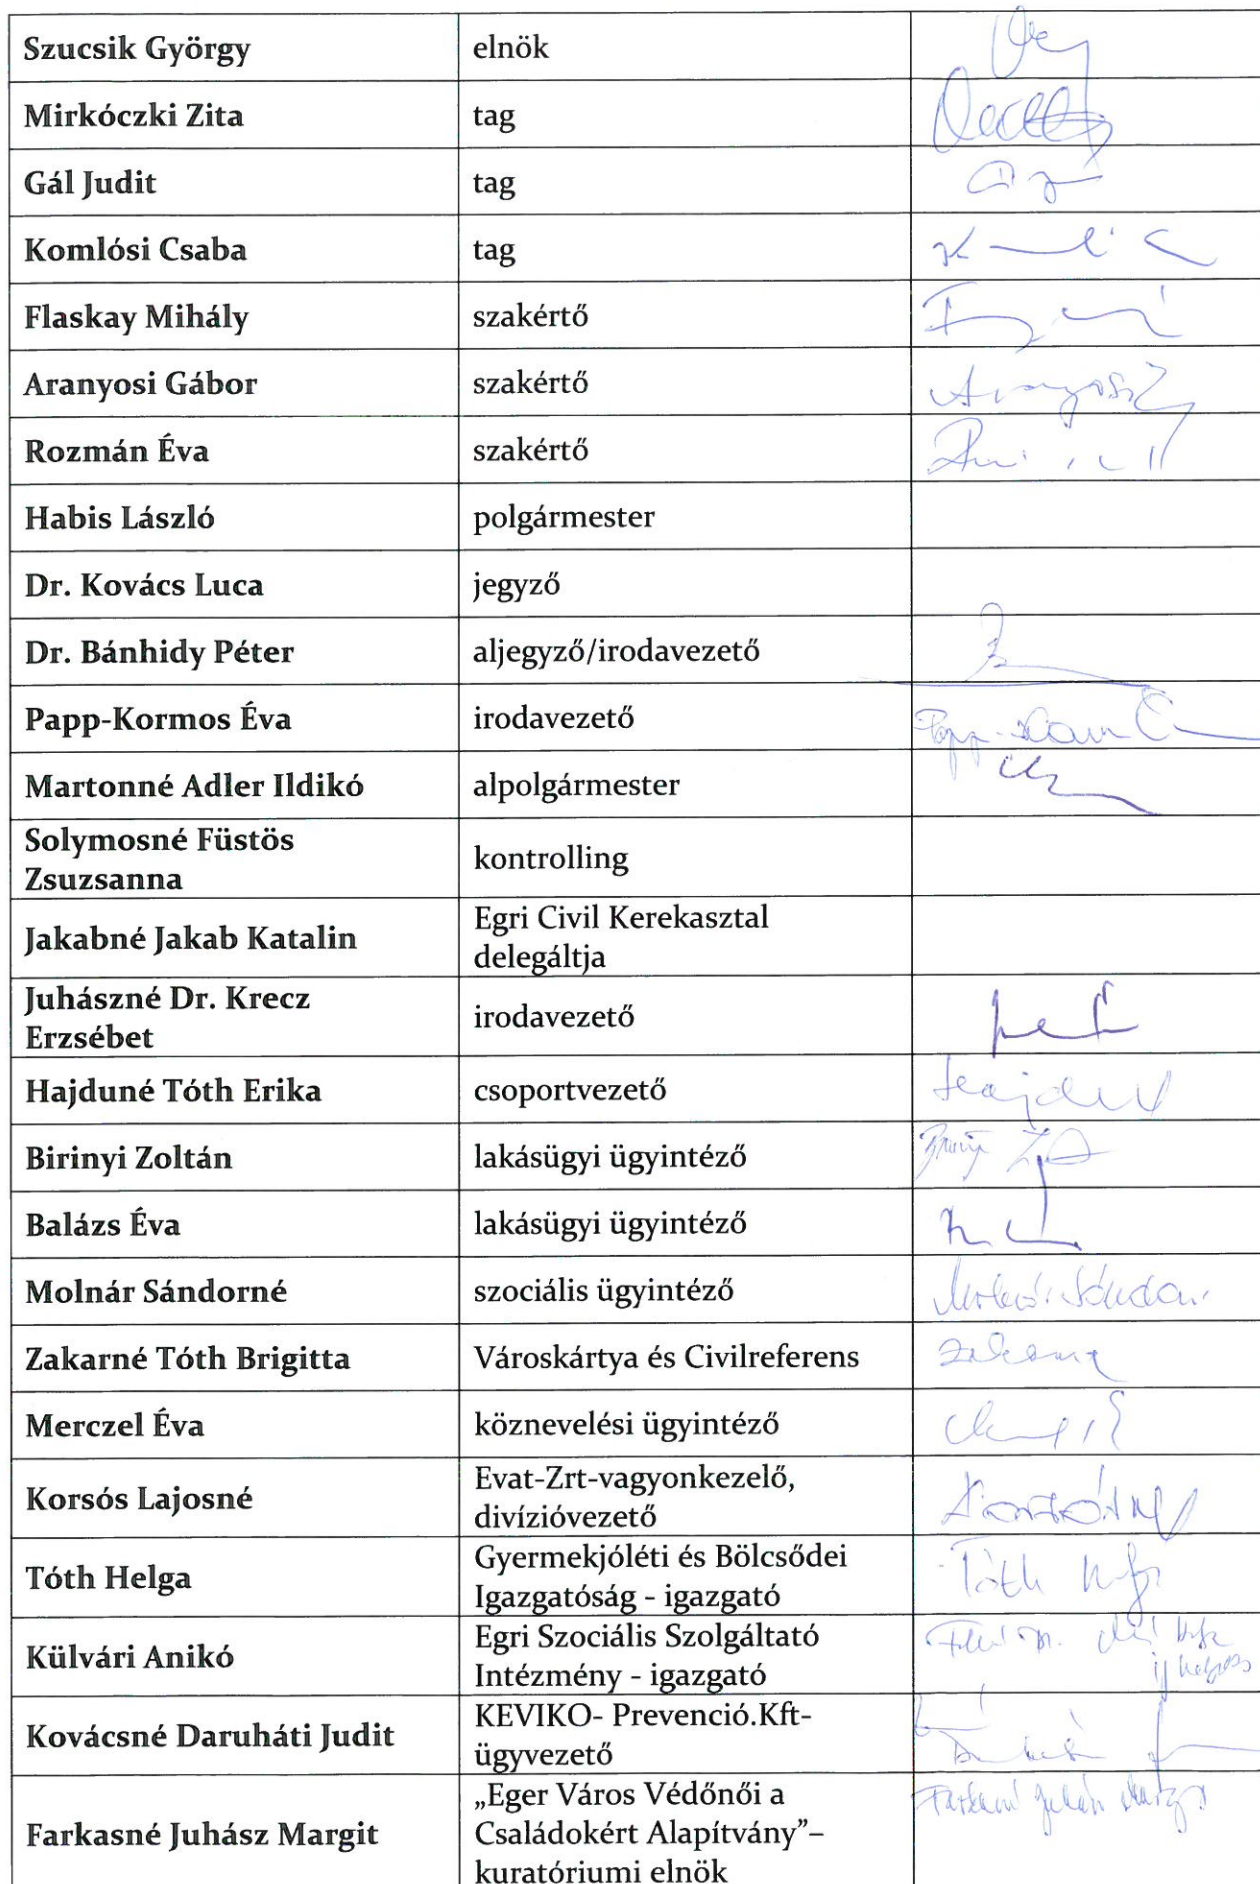 Szucsik György elnök
Mirkóczki Zita tag
Gál Judit tag
Komlósi Csaba tag
Flaskay Mihály szakértő
Aranyosi Gábor szakértő
Aranyosi
Rozmán Éva szakértő
Habis László polgármester
Dr. Kovács Luca jegyző
Dr. Bánhidy Péter aljegyző/irodavezető
Papp-Kormos Éva irodavezető
Martonné Adler Ildikó alpolgármester
Solymosné Füstös
Zsuzsanna
kontrolling
Jakabné Jakab Katalin
Egri Civil Kerekasztal
delegáltja
Juhászné Dr. Krecz
Erzsébet
irodavezető
Hajduné Tóth Erika csoportvezető
Birinyi Zoltán lakásügyi ügyintéző
Balázs Éva lakásügyi ügyintéző
Molnár Sándorné szociális ügyintéző
Zakarné Tóth Brigitta Városkártya és Civilreferens
Merczel Éva köznevelési ügyintéző
Korsós Lajosné
Evat-Zrt-vagyonkezelő,
divízióvezető
Tóth Helga
Gyermekjóléti és Bölcsődei
Igazgatóság - igazgató
Tóth
Külvári Anikó
Egri Szociális Szolgáltató
Intézmény - igazgató
Kovácsné Daruháti Judit
KEVIKO- Prevenció.Kft-
ügyvezető
Farkasné Juhász Margit
„Eger Város Védőnői a
Családokért Alapítvány”–
kuratóriumi elnök